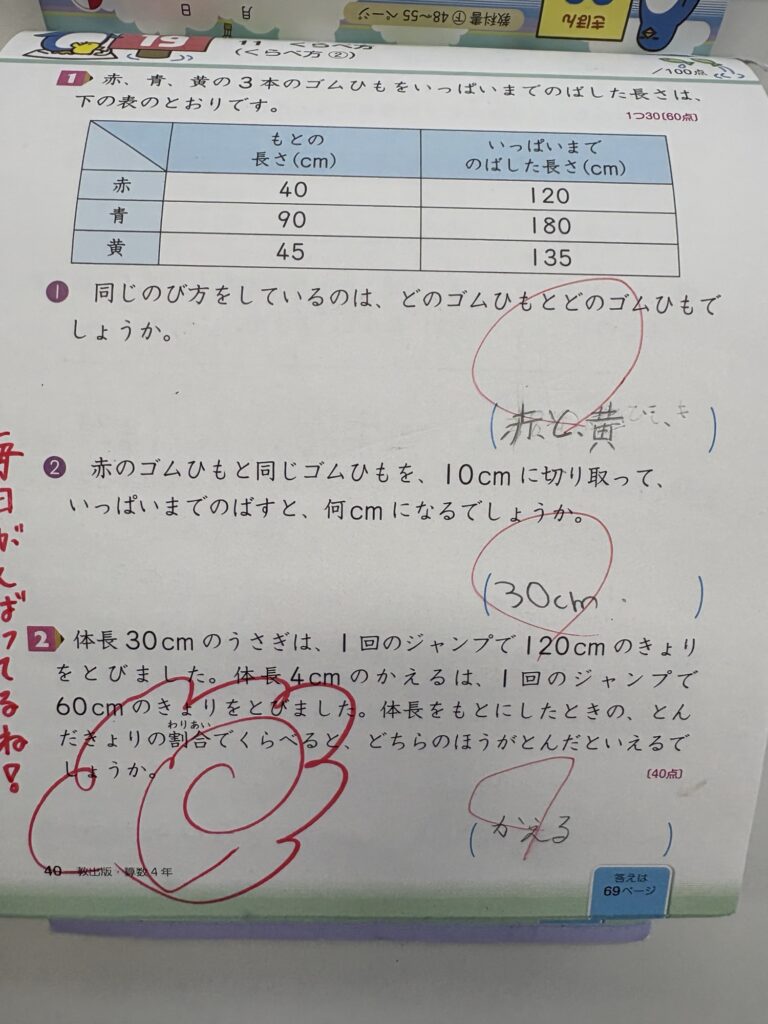 教科書㊦48〜55ページ
きほん
月
日
19
11 くらべ方
(くらべ方②)
/100点
1 赤、青、黄の3本のゴムひもをいっぱいまでのばした長さは、
下の表のとおりです。
1つ30〔60点〕
もとの 長さ(cm) いっぱいまで のばした長さ(cm)
赤 40 120
青 90 180
黄 45 135
❶ 同じのび方をしているのは、どのゴムひもとどのゴムひもで
しょうか。
(赤と、黄)
❷ 赤のゴムひもと同じゴムひもを、10cmに切り取って、
いっぱいまでのばすと、何cmになるでしょうか。
(30cm)
2 体長30cmのうさぎは、1回のジャンプで120cmのきょり
をとびました。体長4cmのかえるは、1回のジャンプで
60cmのきょりをとびました。体長をもとにしたときの、とん
わりあい
だきょりの割合でくらべると、どちらのほうがとんだといえるで
しょうか。
〔40点〕
(かえる)
毎日がんばってるね!
40 教出版・算数4年
答えは
69ページ